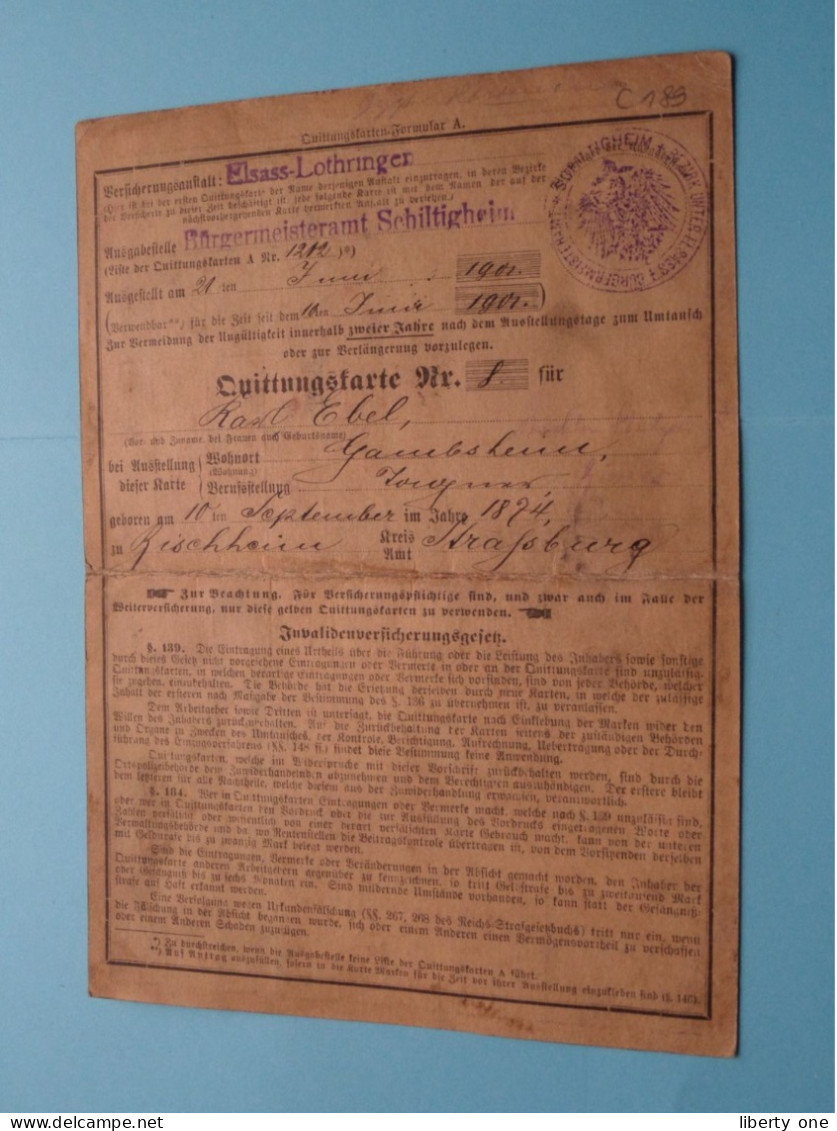 C 189
Quittungskarten-Formular A.
SCHILTIGHEIM * BEZIRK UNTER ELSASS * BÜRGERMEISTERAMT
Versicherungsanstalt: Elsass-Lothringen
(Hier ist bei der ersten Quittungskarte der Name derjenigen Anstalt einzutragen, in deren Bezirke
der Versicherte zu dieser Zeit beschäftigt ist; jede folgende Karte ist mit dem Namen der auf der
nächstvorhergehenden Karte vermerkten Anstalt zu versehen.)
Ausgabestelle Bürgermeisteramt Schiltigheim
(Liste der Quittungskarten A Nr. 1202 )*)
Ausgestellt am 21 ten Juni 1901.
(Verwendbar**) für die Zeit seit dem 10ten Juni 1901.)
Zur Vermeidung der Ungültigkeit innerhalb zweier Jahre nach dem Ausstellungstage zum Umtausch
oder zur Verlängerung vorzulegen.
Quittungskarte Nr. 8. für
Karl Ebel,
(Vor- und Zuname, bei Frauen auch Geburtsname)
bei Ausstellung dieser Karte
Wohnort Gambsheim,
(Wohnung)
Berufsstellung
geboren am 10 ten September im Jahre 1874,
zu Bischheim Kreis Amt Straßburg
Zur Beachtung. Für Versicherungspflichtige sind, und zwar auch im Falle der
Weiterversicherung, nur diese gelben Quittungskarten zu verwenden.
Invalidenversicherungsgesetz.
§. 139. Die Eintragung eines Urtheils über die Führung oder die Leistung des Inhabers sowie sonstige
durch dieses Gesetz nicht vorgesehene Eintragungen oder Vermerke in oder an der Quittungskarte sind unzulässig.
Quittungskarten, in welchen derartige Eintragungen oder Vermerke sich vorfinden, sind von jeder Behörde, welcher
sie zugehen, einzubehalten. Die Behörde hat die Ersetzung derselben durch neue Karten, in welche der zulässige
Inhalt der ersteren nach Maßgabe der Bestimmung des §. 136 zu übernehmen ist, zu veranlassen.
Dem Arbeitgeber sowie Dritten ist untersagt, die Quittungskarte nach Einklebung der Marken wider den
Willen des Inhabers zurückzubehalten. Auf die Zurückbehaltung der Karten seitens der zuständigen Behörden
und Organe zu Zwecken des Umtausches, der Kontrole, Berichtigung, Aufrechnung, Uebertragung oder der Durch-
führung des Einzugsverfahrens (§§. 148 ff.) findet diese Bestimmung keine Anwendung.
Quittungskarten, welche im Widerspruche mit dieser Vorschrift zurückbehalten werden, sind durch die
Ortspolizeibehörde dem Zuwiderhandelnden abzunehmen und dem Berechtigten auszuhändigen. Der erstere bleibt
dem letzteren für alle Nachtheile, welche diesem aus der Zuwiderhandlung erwachsen, verantwortlich.
§. 184. Wer in Quittungskarten Eintragungen oder Vermerke macht, welche nach §. 139 unzulässig sind,
oder wer in Quittungskarten den Vordruck oder die zur Ausfüllung des Vordrucks eingetragenen Worte oder
Zahlen verfälscht oder wissentlich von einer derart verfälschten Karte Gebrauch macht, kann von der unteren
Verwaltungsbehörde und da, wo Rentenstellen die Beitragskontrole übertragen ist, von dem Vorsitzenden derselben
mit Geldstrafe bis zu zwanzig Mark belegt werden.
Sind die Eintragungen, Vermerke oder Veränderungen in der Absicht gemacht worden, den Inhaber der
Quittungskarte anderen Arbeitgebern gegenüber zu kennzeichnen, so tritt Geldstrafe bis zu zweitausend Mark
oder Gefängniß bis zu sechs Monaten ein. Sind mildernde Umstände vorhanden, so kann statt der Gefängniß-
strafe auf Haft erkannt werden.
Eine Verfolgung wegen Urkundenfälschung (§§. 267, 268 des Reichs-Strafgesetzbuchs) tritt nur ein, wenn
die Fälschung in der Absicht begangen wurde, sich oder einem Anderen einen Vermögensvortheil zu verschaffen
oder einem Anderen Schaden zuzufügen.
*) Zu durchstreichen, wenn die Ausgabestelle keine Liste der Quittungskarten A führt.
**) Auf Antrag auszufüllen, sofern in die Karte Marken für die Zeit vor ihrer Ausstellung einzukleben sind (§. 146).
liberty one